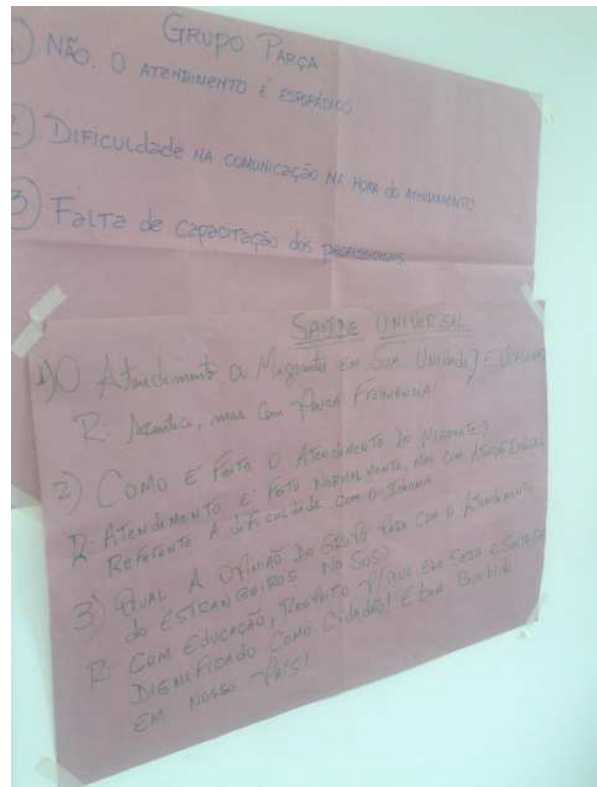 GRUPO PARÇA
1) NÃO. O ATENDIMENTO É ESPORÁDICO
2) DIFICULDADE NA COMUNICAÇÃO NA HORA do ATENDIMENTO
3) FALTA de CAPACITAÇÃO dos PROFISSIONAIS
SAÚDE UNIVERSAL
1) O Atendimento a Migrantes EM SUA Unidade?
R: Acontece, mas com POUCA FREQUÊNCIA!
2) COMO É FEITO O ATENDIMENTO DO MIGRANTE?
R: ATENDIMENTO É FEITO NORMALMENTE, MAS COM ATENÇÃO
REFERENTE A DIFICULDADE COM O IDIOMA
3) QUAL A OPINIÃO DO GRUPO PARA COM O ATENDIMENTO
do ESTRANGEIROS NO SUS?
R: COM EDUCAÇÃO, RESPEITO P/ QUE ELE SEJA E SINTA-SE
DIGNIFICADO COMO CIDADÃO! E bem Recebido
EM NOSSO PAÍS!